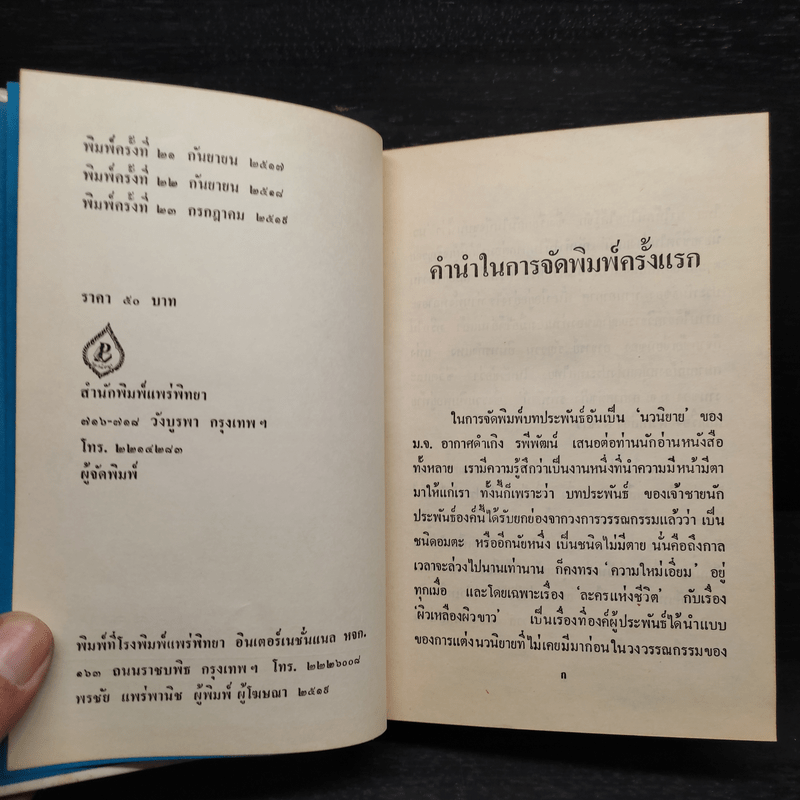 พิมพ์ครั้งที่ ๒๑ กันยายน ๒๕๑๗
พิมพ์ครั้งที่ ๒๒ กันยายน ๒๕๑๘
พิมพ์ครั้งที่ ๒๓ กรกฎาคม ๒๕๑๙
ราคา ๕๐ บาท
สำนักพิมพ์แพร่พิทยา
๗๑๖-๗๑๘ วังบูรพา กรุงเทพฯ
โทร. ๒๒๑๔๒๘๓
ผู้จัดพิมพ์
พิมพ์ที่โรงพิมพ์แพร่พิทยา อินเตอร์เนชั่นแนล หจก.
๑๖๓ ถนนราชบพิธ กรุงเทพฯ โทร. ๒๒๒๖๐๐๘
พรชัย แพร่พานิช ผู้พิมพ์ ผู้โฆษณา ๒๕๑๙
คำนำในการจัดพิมพ์ครั้งแรก
ในการจัดพิมพ์บทประพันธ์อันเป็น 'นวนิยาย' ของ
ม.จ. อากาศดำเกิง รพีพัฒน์ เสนอต่อท่านนักอ่านหนังสือ
ทั้งหลาย เรามีความรู้สึกว่าเป็นงานหนึ่งที่นำความมีหน้ามีตา
มาให้แก่เรา ทั้งนี้ก็เพราะว่า บทประพันธ์ ของเจ้าชายนัก
ประพันธ์องค์นี้ได้รับยกย่องจากวงการวรรณกรรมแล้วว่า เป็น
ชนิดอมตะ หรืออีกนัยหนึ่ง เป็นชนิดไม่มีตาย นั่นคือถึงกาล
เวลาจะล่วงไปนานเท่านาน ก็คงทรง 'ความใหม่เอี่ยม' อยู่
ทุกเมื่อ และโดยเฉพาะเรื่อง 'ละครแห่งชีวิต' กับเรื่อง
'ผิวเหลืองผิวขาว' เป็นเรื่องที่องค์ผู้ประพันธ์ได้นำแบบ
ของการแต่งนวนิยายที่ไม่เคยมีมาก่อนในวงวรรณกรรมของ
ก